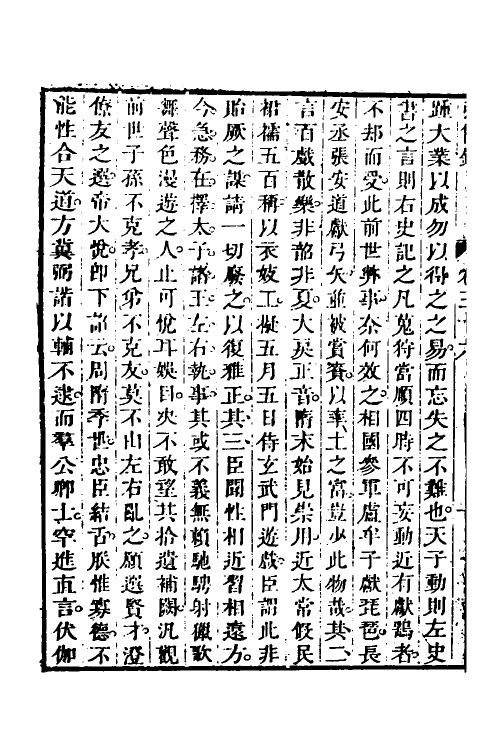 踵大業以成勿以得之之易而忘失之不難也天子動則左史
書之言則右史記之凡蒐狩當順四時不可妄動近有獻鷂者
不却而受此前世弊事奈何效之相國參軍盧牟子獻琵琶長
安丞張安道獻弓矢並被賞賚以率土之富豈少此物哉其二
言百戲散樂非韶非夏大業正音隋末始見崇用近太常假民
裙襦五百稱以衣妓工擬五月五日侍玄武門遊戲臣謂此非
貽厥之謀請一切廢之以復雅正其三臣聞性相近習相遠方
今急務在擇太子諸王左右執事其或不義無賴馳騁射獵歌
舞聲色漫遊之人止可悅耳娛目決不敢望其拾遺補闕汎觀
前世子孫不克孝兄弟不克友莫不由左右亂之願選賢才澄
僚友之選帝大悅即下詔云周隋季世忠臣結舌朕惟寡德不
能性合天道方冀弼諧以輔不逮而羣公卿士罕進直言伏伽